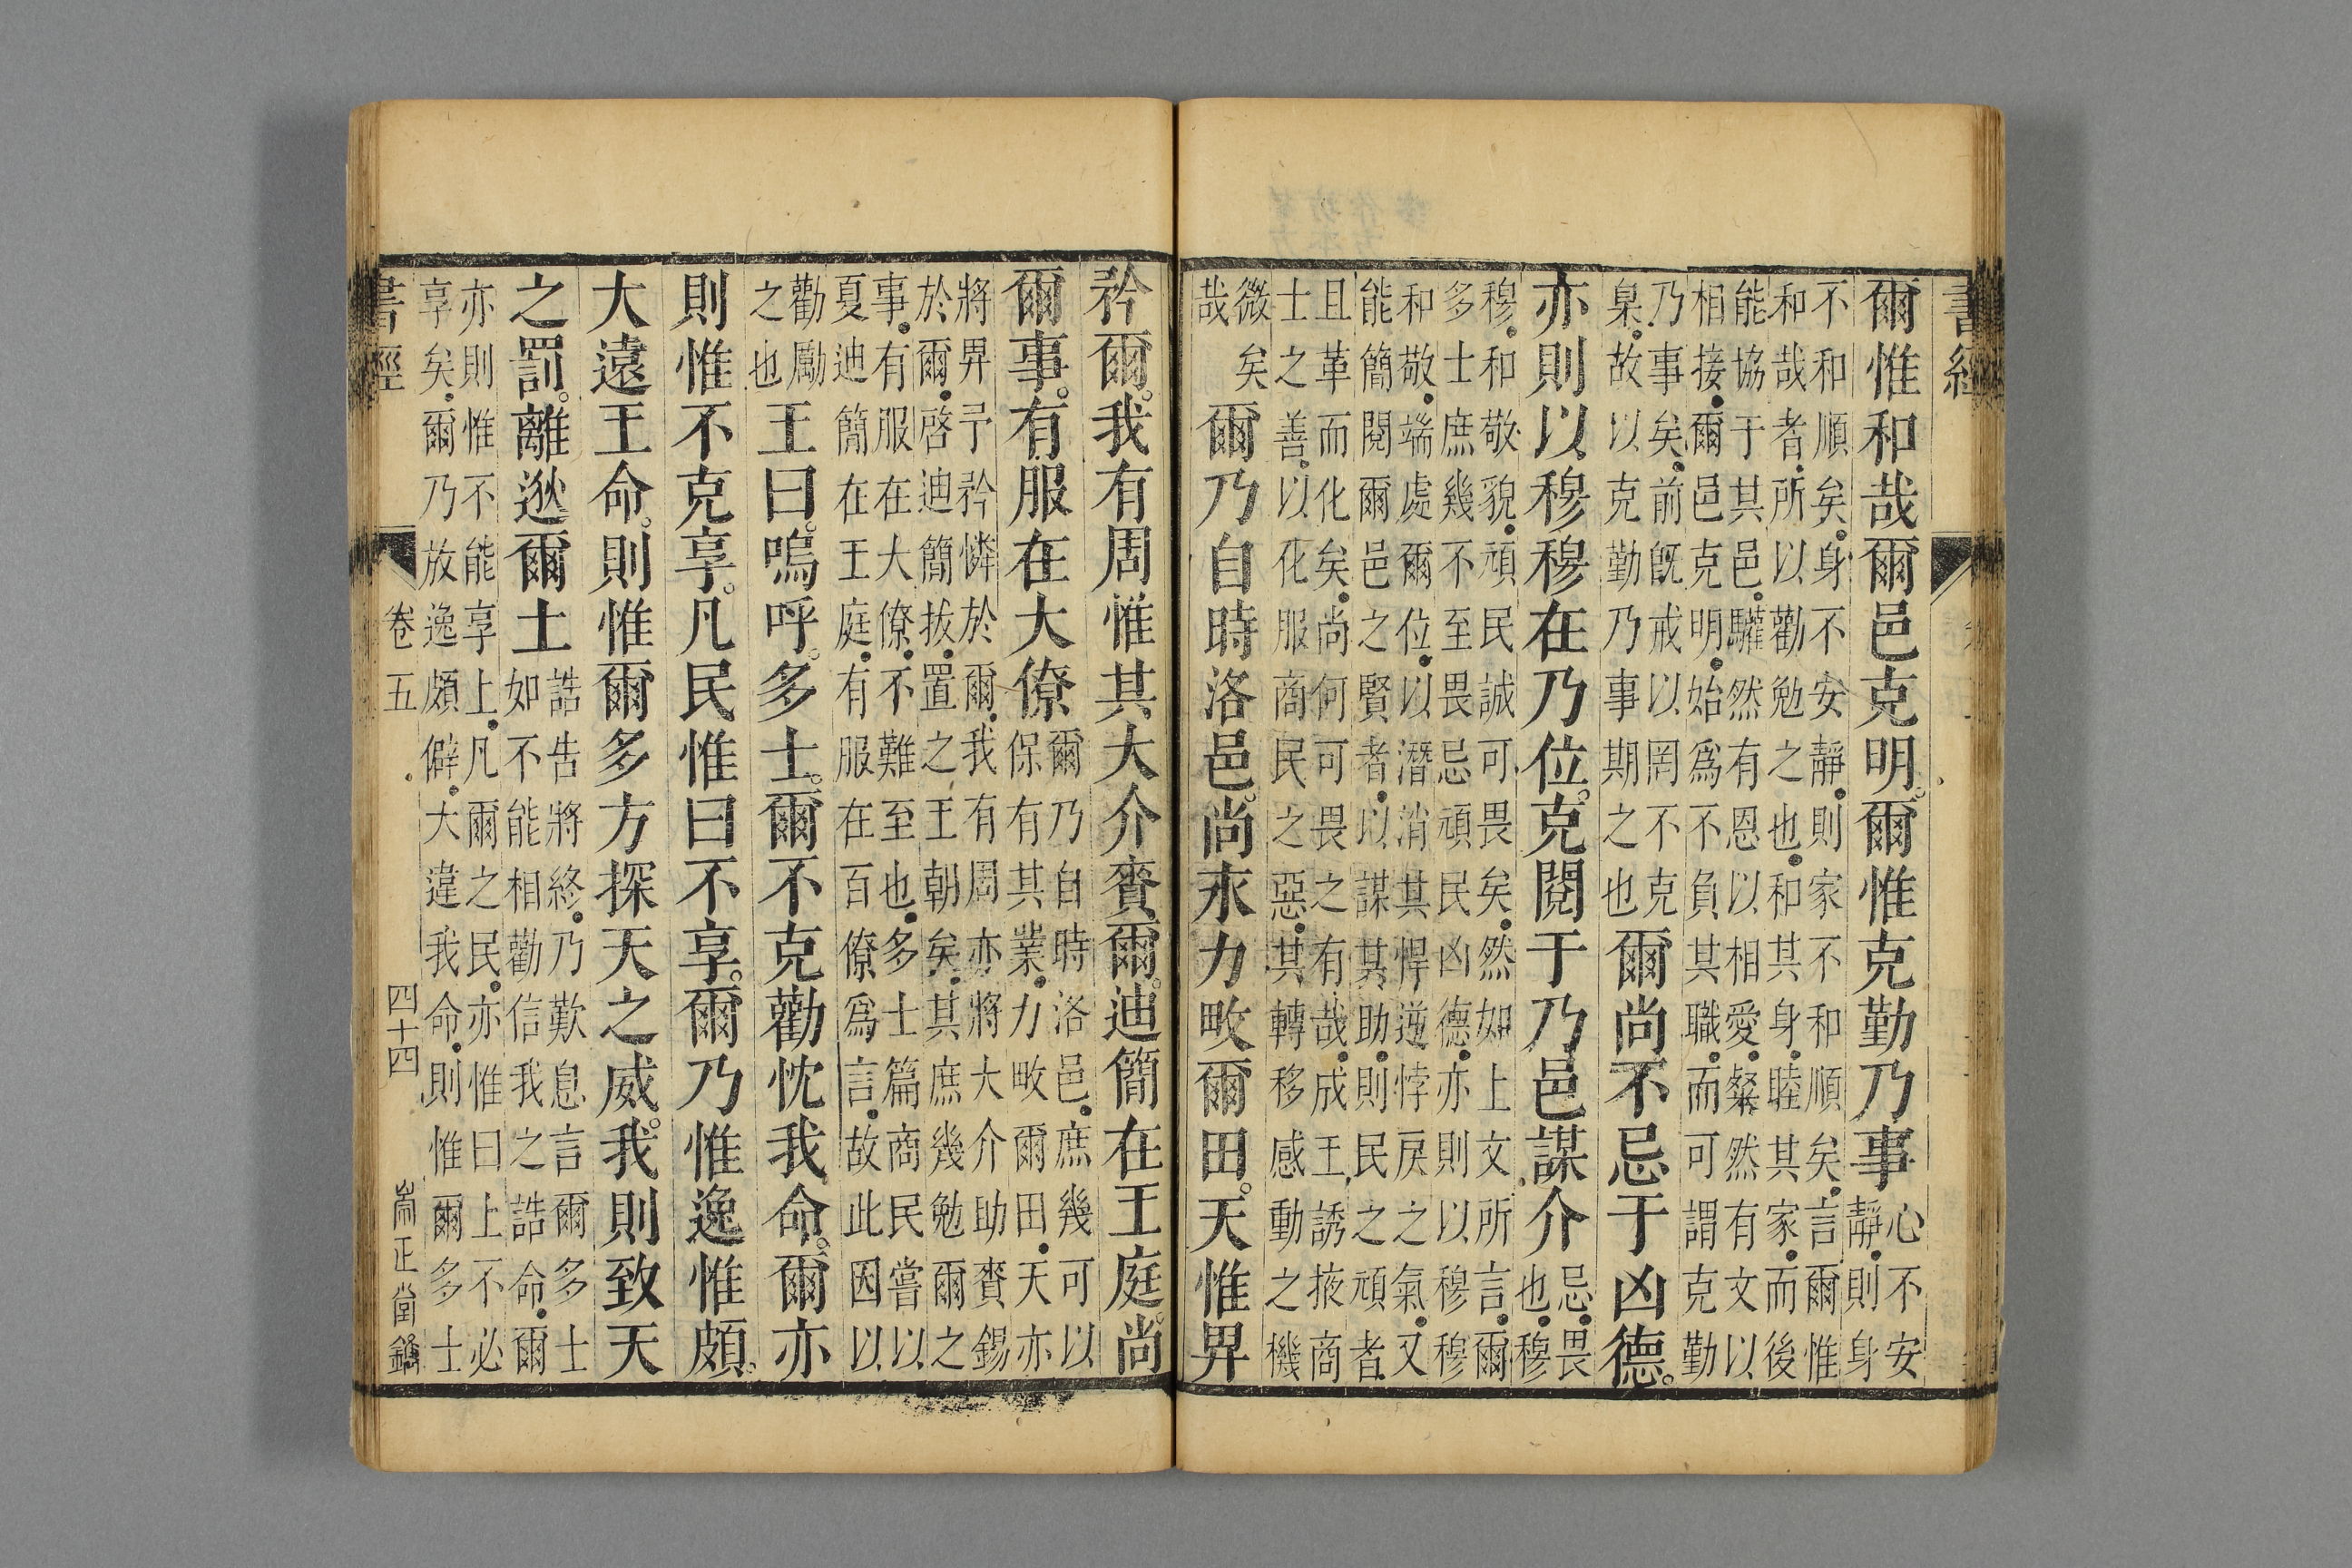 書經
爾惟和哉爾邑克明。爾惟克勤乃事
心不安
靜。則身
不和順矣。身不安靜。則家不和順矣。言爾惟
和哉者。所以勸勉之也。和其身。睦其家。而後
能協于其邑。驩然有恩以相愛。粲然有文以
相接。爾邑克明。始爲不負其職。而可謂克勤
乃事矣。前旣戒以罔不克
臬。故以克勤乃事期之也
爾尚不忌于凶德。
亦則以穆穆在乃位。克閱于乃邑謀介
忌。畏
也。穆
穆。和敬貌。頑民誠可畏矣。然如上文所言。爾
多士庶幾不至畏忌頑民凶德。亦則以穆穆
和敬。端處爾位。以潛消其悍逆悖戾之氣。又
能簡閱爾邑之賢者。以謀其助。則民之頑者
且革而化矣。尚何可畏之有哉。成王誘掖商
士之善。以化服商民之惡。其轉移感動之機
微矣
哉
爾乃自時洛邑。尚永力畋爾田。天惟畀
矜爾。我有周惟其大介賚爾。迪簡在王庭。尚
爾事。有服在大僚
爾乃自時洛邑。庶幾可以
保有其業。力畋爾田。天亦
將畀予矜憐於爾。我有周亦將大介助賚錫
於爾。啓迪簡拔。置之王朝矣。其庶幾勉爾之
事。有服在大僚。不難至也。多士篇商民嘗以
夏迪簡在王庭。有服在百僚爲言。故此因以
勸勵
之也
王曰。嗚呼。多士。爾不克勸忱我命。爾亦
則惟不克享。凡民惟曰不享。爾乃惟逸惟頗
大遠王命。則惟爾多方探天之威。我則致天
之罰。離逖爾土
誥告將終。乃歎息言爾多士
如不能相勸信我之誥命。爾
亦則惟不能享上。凡爾之民。亦惟曰上不必
享矣。爾乃放逸頗僻。大違我命。則惟爾多士
書經
卷五
四十四
正堂鐫